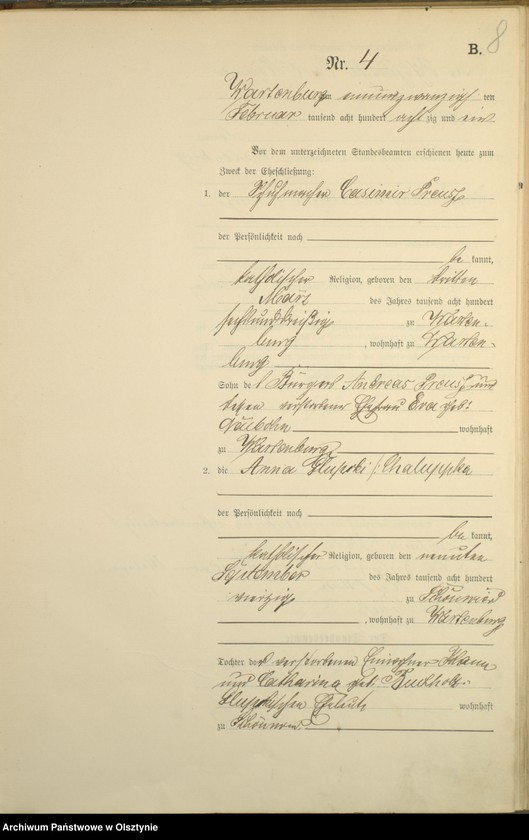 B. 8
Nr. 4
Wartenburg am neunundzwanzig ten
Februar tausend acht hundert acht zig und ein
Vor dem unterzeichneten Standesbeamten erschienen heute zum
Zweck der Eheschließung:
1. der Schuhmacher Casimir Preuß
der Persönlichkeit nach
be kannt,
katholischer Religion, geboren den dritten
März des Jahres tausend acht hundert
sechsunddreißig zu Warten-
burg, wohnhaft zu Warten-
burg
Sohn des Bürgers Andreas Preuß und
verstorbener Ehefrau Eva geb:
wohnhaft
zu Wartenburg
2. die Anna Slupski /: Chaluppka
der Persönlichkeit nach
be kannt,
katholischer Religion, geboren den neunten
September des Jahres tausend acht hundert
vierzig zu Schönwies
, wohnhaft zu Wartenburg
Tochter der verstorbenen Einwohner
und Catharina geb: Buchholz-
Eheleute wohnhaft
zu
Archiwum Państwowe w Olsztynie